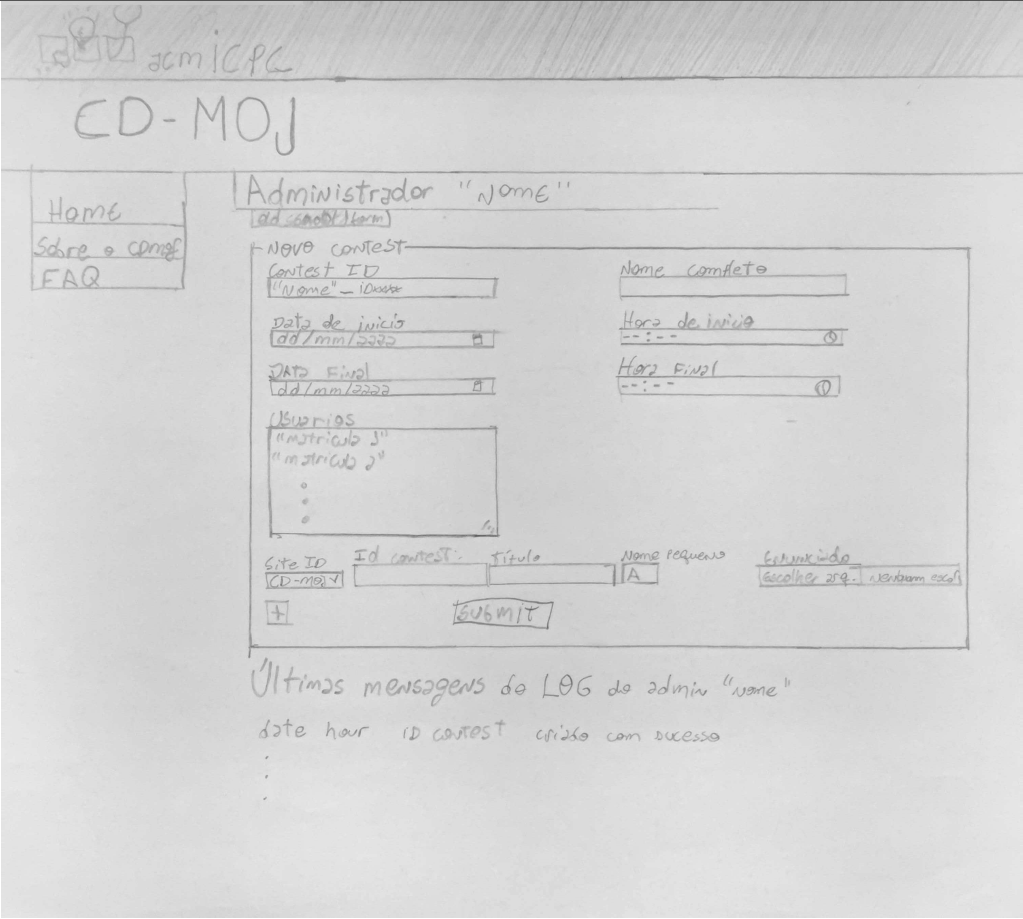 acmICPC
CD-MOJ
Home
Sobre o CDMOJ
FAQ
Administrador "Nome"
Novo contest
Contest ID
Nome completo
"Nome"_
Data de inicio
Hora de inicio
dd/mm/2222
--:--
Data Final
Hora Final
dd/mm/2222
--:--
Usuarios
"matricula 1"
"matricula 2"
Site ID
Id contest:
Título
Nome pequeno
Enunciado
CD-MOJ
A
Escolher arq.
Nenhum escol
+
SUBMIT
Últimas mensagens do LOG do admin "Nome"
date hour ID contest criado com sucesso